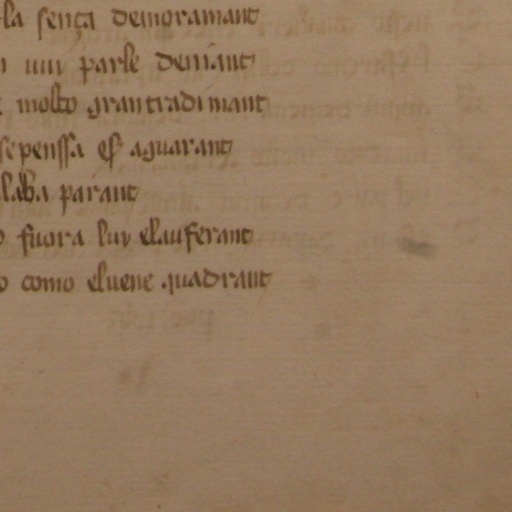 la sença demoramant
uui parle deriant
molto gran tradimant
se penssa et aguarant
laba parant
fuora luy elauferant
como eluene quadrant